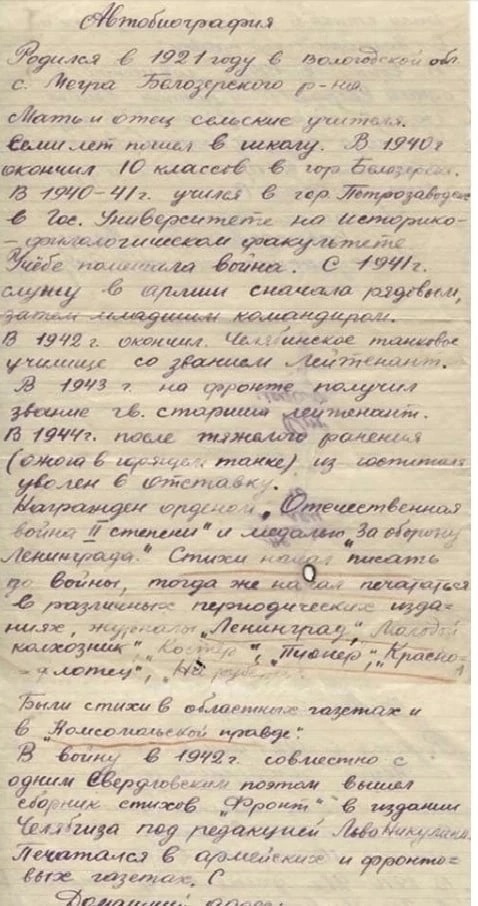 Автобиография
Родился в 1921 году в Вологодской обл.
с. Мегра Белозерского р-на.
Мать и отец сельские учителя.
Семи лет пошел в школу. В 1940г
окончил 10 классов в гор Белозерске.
В 1940-41г. учился в гор. Петрозаводск
в Гос. Университете на историко-
-филологическом факультете
Учёбе помешала война. С 1941г.
служу в армии сначала рядовым,
затем младшим командиром.
В 1942 г. окончил Челябинское танковое
училище со званием Лейтенант.
В 1943 г. на фронте получил
звание гв. старший лейтенант.
В 1944г. после тяжелого ранения
(ожога в горящем танке) из госпиталя
уволен в отставку.
Награжден орденом „Отечественная
война II степени" и медалью „За оборону
Ленинграда." Стихи начал писать
до войны, тогда же начал печататься
в различных периодических изда=
ниях, журналы „Ленинград", Молодой
колхозник", „Костер", „Пионер", „Красно-
-флотец",
Были стихи в областных газетах и
в „Комсомольской правде".
В войну в 1942г. совместно с
одним Свердловским поэтом вышел
сборник стихов „Фронт" в издании
Челябгиза под редакцией Льва Никулина.
Печатался в армейских и фронто=
вых газетах. С
Домашний адрес